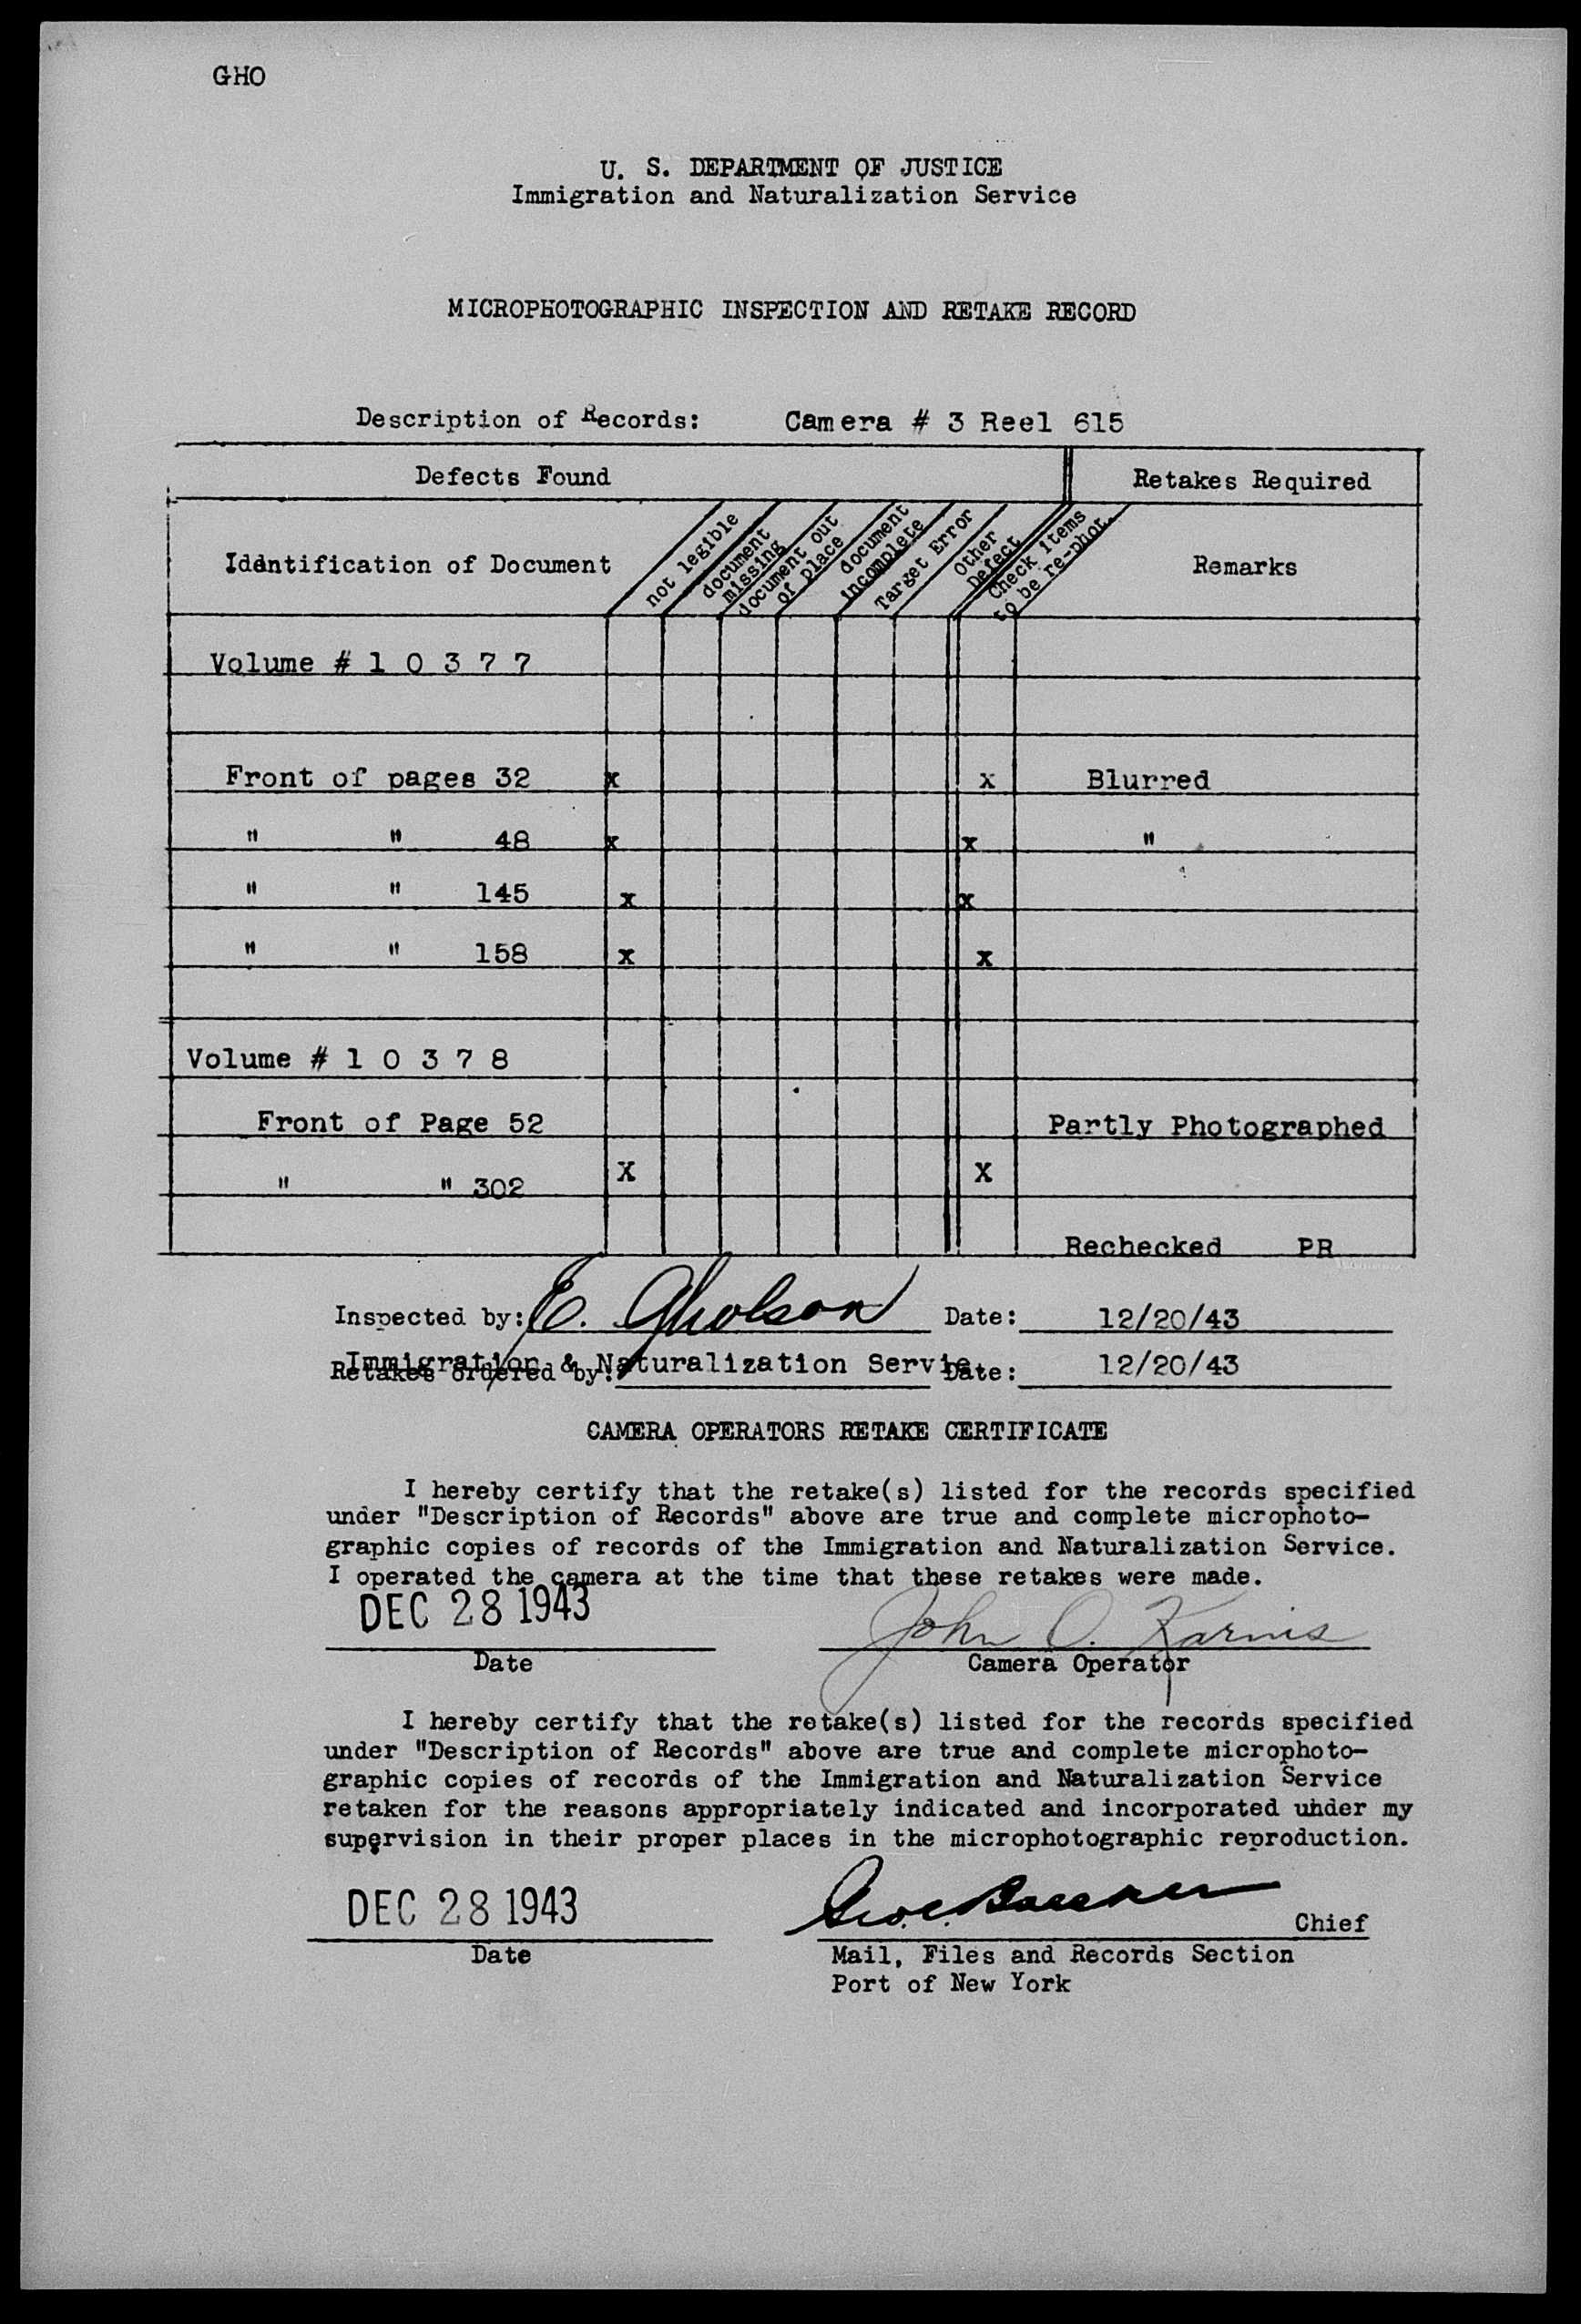 GHO
U. S. DEPARTMENT OF JUSTICE
Immigration and Naturalization Service
MICROPHOTOGRAPHIC INSPECTION AND RETAKE RECORD
Description of Records: Camera # 3 Reel 615
Defects Found Retakes Required
Identification of Document not legible document missing document out of place document incomplete Target Error Other Defect Check items to be re-phot. Remarks
Volume # 1 0 3 7 7
Front of pages 32 x x Blurred
" " 48 x x "
" " 145 x x
" " 158 x x
Volume # 1 0 3 7 8
Front of Page 52 Partly Photographed
" " 302 X X
Rechecked PR
Inspected by: E. Gholson Date: 12/20/43
Retakes ordered by: Immigration & Naturalization Servie Date: 12/20/43
CAMERA OPERATORS RETAKE CERTIFICATE
I hereby certify that the retake(s) listed for the records specified
under "Description of Records" above are true and complete microphoto-
graphic copies of records of the Immigration and Naturalization Service.
I operated the camera at the time that these retakes were made.
DEC 28 1943 John O.
Date Camera Operator
I hereby certify that the retake(s) listed for the records specified
under "Description of Records" above are true and complete microphoto-
graphic copies of records of the Immigration and Naturalization Service
retaken for the reasons appropriately indicated and incorporated under my
supervision in their proper places in the microphotographic reproduction.
DEC 28 1943 Chief
Date Mail, Files and Records Section
Port of New York